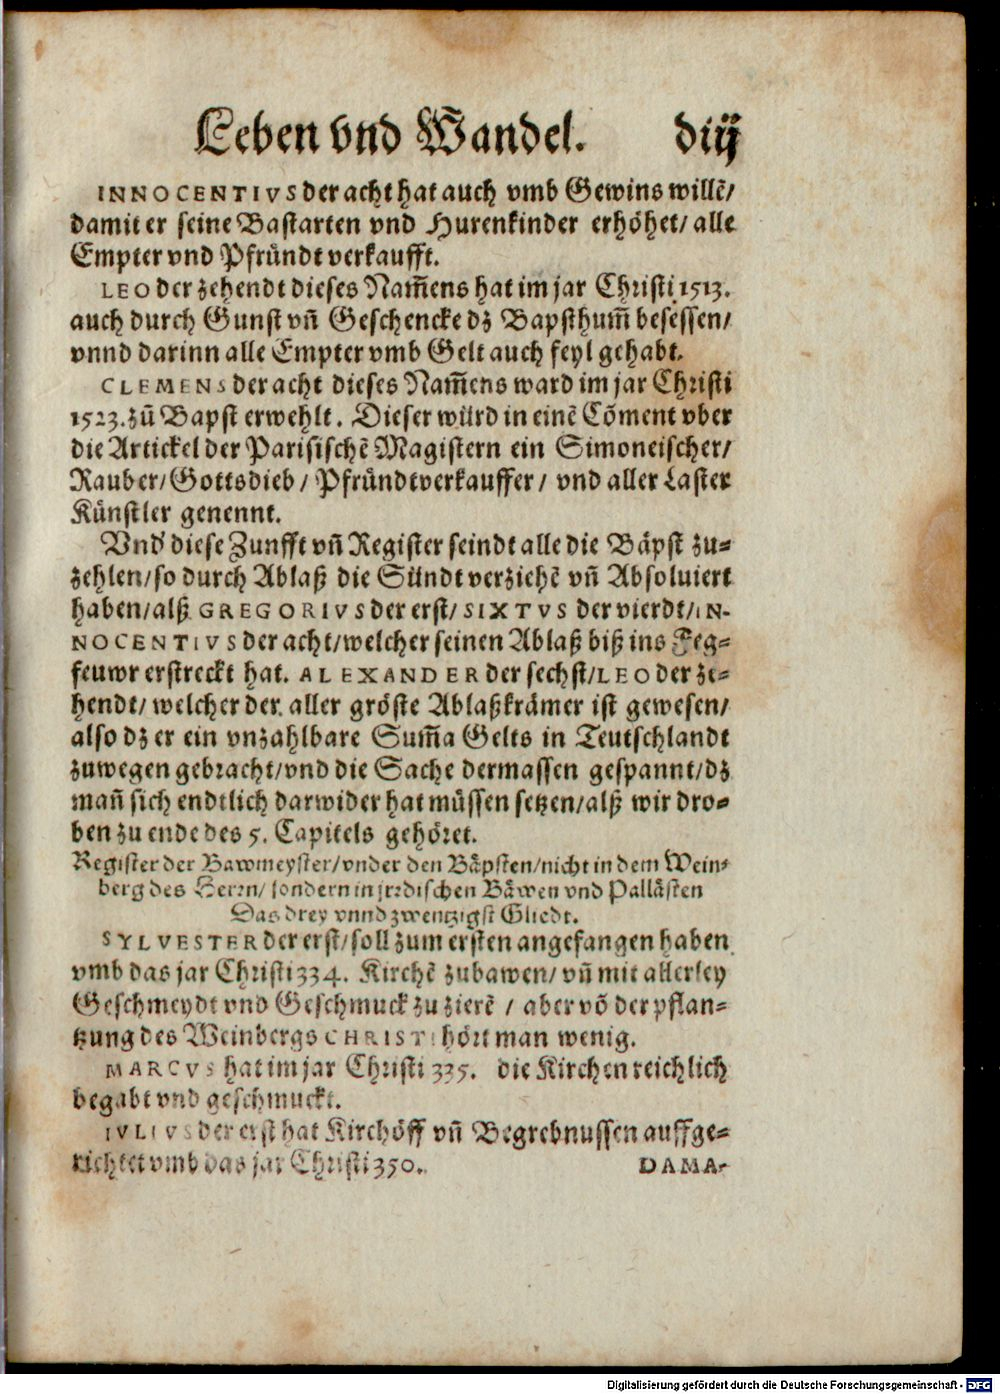 Leben vnd Wandel. diij
INNOCENTIVS der acht hat auch vmb Gewins willē/
damit er seine Bastarten vnd Hurenkinder erhöhet/ alle
Empter vnd Pfründt verkaufft.
LEO der zehendt dieses Nam̄ens hat im jar Christi 1513.
auch durch Gunst vn̄ Geschencke dz Bapsthum̄ besessen/
vnnd darinn alle Empter vmb Gelt auch feyl gehabt.
CLEMENS der acht dieses Nam̄ens ward im jar Christi
1523. zū Bapst erwehlt. Dieser würd in einē Cōment vber
die Artickel der Parisischē Magistern ein Simoneischer/
Rauber/ Gottsdieb/ Pfründtverkauffer/ vnd aller Laster
Künstler genennt.
Vnd diese Zunfft vn̄ Register seindt alle die Bäpst zu-
zehlen/ so durch Ablaß die Sündt verziehē vn̄ Absoluiert
haben/ alß GREGORIVS der erst/ SIXTVS der vierdt/ IN-
NOCENTIVS der acht/ welcher seinen Ablaß biß ins Feg-
feuwr erstreckt hat. ALEXANDER der sechst/ LEO der ze-
hendt/ welcher der aller gröste Ablaßkrämer ist gewesen/
also dz er ein vnzahlbare Sum̄a Gelts in Teutschlandt
zuwegen gebracht/ vnd die Sache dermassen gespannt/ dz
man̄ sich endtlich darwider hat müssen setzen/ alß wir dro-
ben zu ende des 5. Capitels gehöret.
Register der Bawmeyster/ vnder den Bäpsten/ nicht in dem Wein-
berg des Herrn/ sondern in jrrdischen Bäwen vnd Pallästen
Das drey vnnd zwentzigst Gliedt.
SYLVESTER der erst/ soll zum ersten angefangen haben
vmb das jar Christi 334. Kirchē zubawen/ vn̄ mit allerley
Geschmeydt vnd Geschmuck zu zierē / aber vō der pflan-
tzung des Weinbergs CHRISTI hört man wenig.
MARCVS hat im jar Christi 335. die Kirchen reichlich
begabt vnd geschmuckt.
IVLIVS der erst hat Kirchöff vn̄ Begrebnussen auffge-
richtet vmb das jar Christi 350. DAMA-
Digitalisierung gefördert durch die Deutsche Forschungsgemeinschaft - DFG